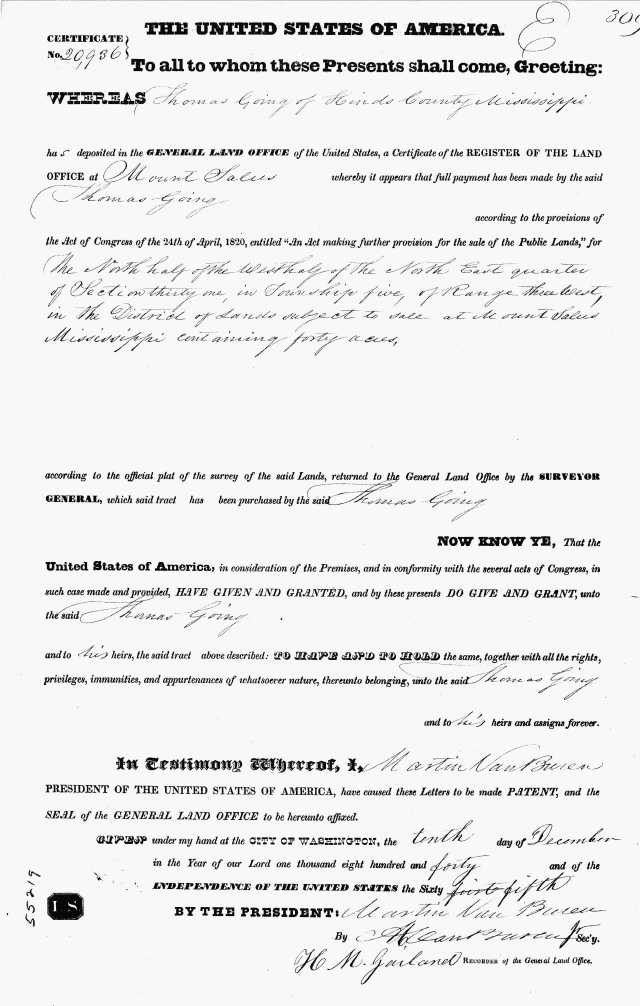 THE UNITED STATES OF AMERICA.
E
309
CERTIFICATE
No. 20,936
To all to whom these Presents shall come, Greeting:
WHEREAS Thomas Going of Hinds County Mississippi
has deposited in the GENERAL LAND OFFICE of the United States, a Certificate of the REGISTER OF THE LAND
OFFICE at Mount Salus whereby it appears that full payment has been made by the said
Thomas Going
according to the provisions of
the Act of Congress of the 24th of April, 1820, entitled "An Act making further provision for the sale of the Public Lands," for
the North half of the West half of the North East quarter
of Section thirty one, in Township five, of Range three West,
in the District of Lands subject to sale at Mount Salus
Mississippi containing forty acres,
according to the official plat of the survey of the said Lands, returned to the General Land Office by the SURVEYOR
GENERAL, which said tract has been purchased by the said Thomas Going
NOW KNOW YE, That the
United States of America, in consideration of the Premises, and in conformity with the several acts of Congress, in
such case made and provided, HAVE GIVEN AND GRANTED, and by these presents DO GIVE AND GRANT, unto
the said Thomas Going
and to his heirs, the said tract above described: TO HAVE AND TO HOLD the same, together with all the rights,
privileges, immunities, and appurtenances of whatsoever nature, thereunto belonging, unto the said Thomas Going
and to his heirs and assigns forever.
In Testimony Whereof, I, Martin Van Buren
PRESIDENT OF THE UNITED STATES OF AMERICA, have caused these Letters to be made PATENT, and the
SEAL of the GENERAL LAND OFFICE to be hereunto affixed.
GIVEN under my hand at the CITY OF WASHINGTON, the tenth day of December
in the Year of our Lord one thousand eight hundred and forty and of the
INDEPENDENCE OF THE UNITED STATES the Sixty fifth
55219
LS
BY THE PRESIDENT: Martin Van Buren
By Van Buren Jr Sec'y.
H. M. Garland RECORDER of the General Land Office.